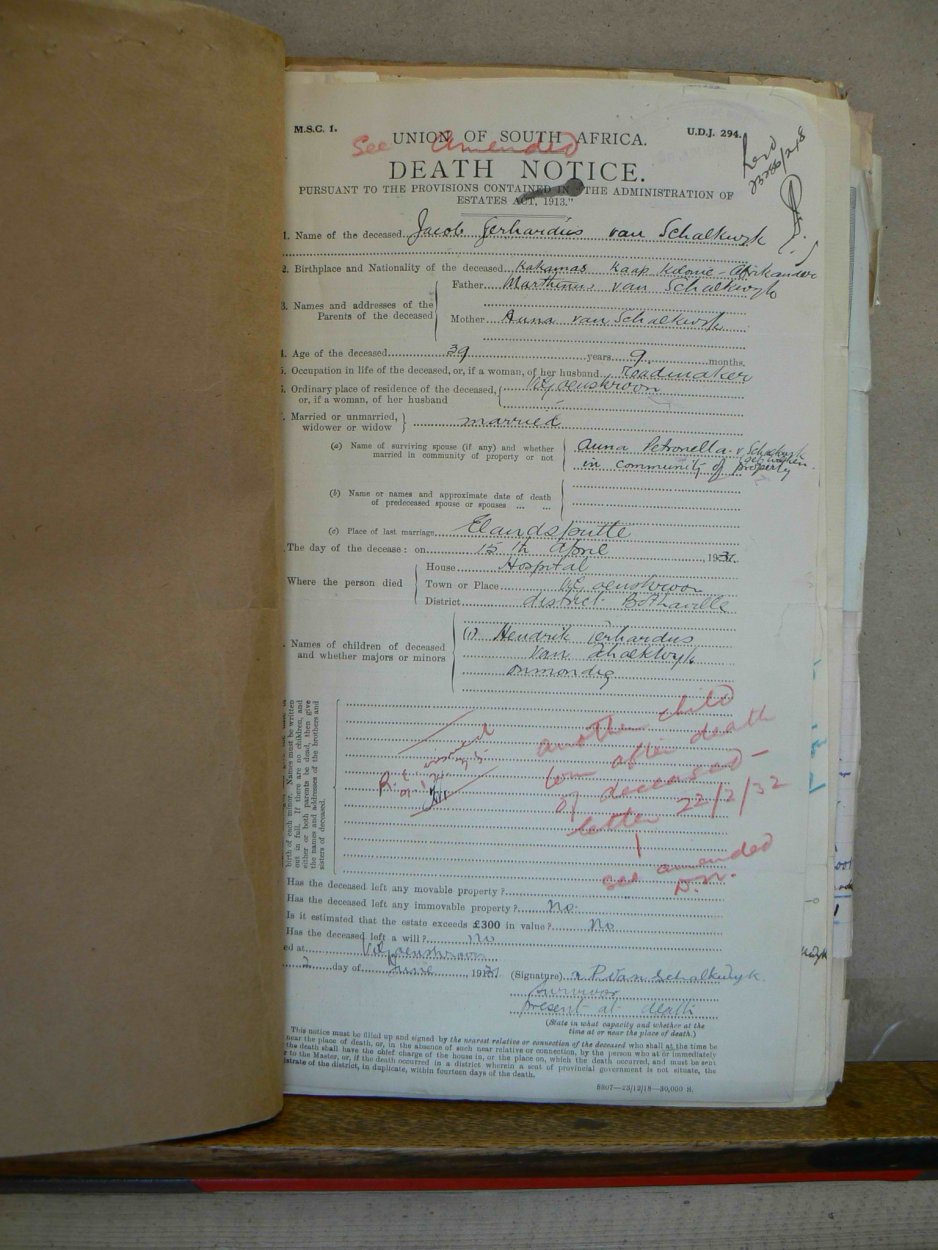 M.S.C. 1.
U.D.J. 294.
UNION OF SOUTH AFRICA.
See Amended
DEATH NOTICE.
PURSUANT TO THE PROVISIONS CONTAINED IN "THE ADMINISTRATION OF
ESTATES ACT, 1913."
1. Name of the deceased Jacob Gerhardus van Schalkwyk
2. Birthplace and Nationality of the deceased Kakamas Kaap Kolonie - Afrikander
3. Names and addresses of the Parents of the deceased
Father Marthinus van Schalkwyk
Mother Anna van Schalkwyk
Age of the deceased 39 years 9 months.
Occupation in life of the deceased, or, if a woman, of her husband Roadmaker
Ordinary place of residence of the deceased,
or, if a woman, of her husband
Married or unmarried,
widower or widow
married
(a) Name of surviving spouse (if any) and whether
married in community of property or not
Anna Petronella v. Schalkwyk
in community of property
(b) Name or names and approximate date of death
of predeceased spouse or spouses ... ...
(c) Place of last marriage Elandsputte
The day of the decease: on 15th April 1931.
Where the person died
House Hospital
Town or Place
District district Bothaville
Names of children of deceased
and whether majors or minors
(1) Hendrik Gerhardus
van Schalkwyk
onmondig
birth of each minor. Names must be written
out in full. If there are no children, and
either or both parents be dead, then give
the names and addresses of the brothers and
sisters of deceased.
another child
born after death
of deceased -
letter 22/2/32
see amended
D.N.
Has the deceased left any movable property?
Has the deceased left any immovable property? No.
Is it estimated that the estate exceeds £300 in value? No
Has the deceased left a will? No
ed at
2 day of June 1931
(Signature) A P van Schalkwyk
Survivor
present at death
(State in what capacity and whether at the
time at or near the place of death.)
This notice must be filled up and signed by the nearest relative or connection of the deceased who shall at the time be
near the place of death, or, in the absence of such near relative or connection, by the person who at or immediately
the death shall have the chief charge of the house in, or the place on, which the death occurred, and must be sent
to the Master, or, if the death occurred in a district wherein a seat of provincial government is not situate, the
istrate of the district, in duplicate, within fourteen days of the death.
8807—23/12/18—30,000 S.